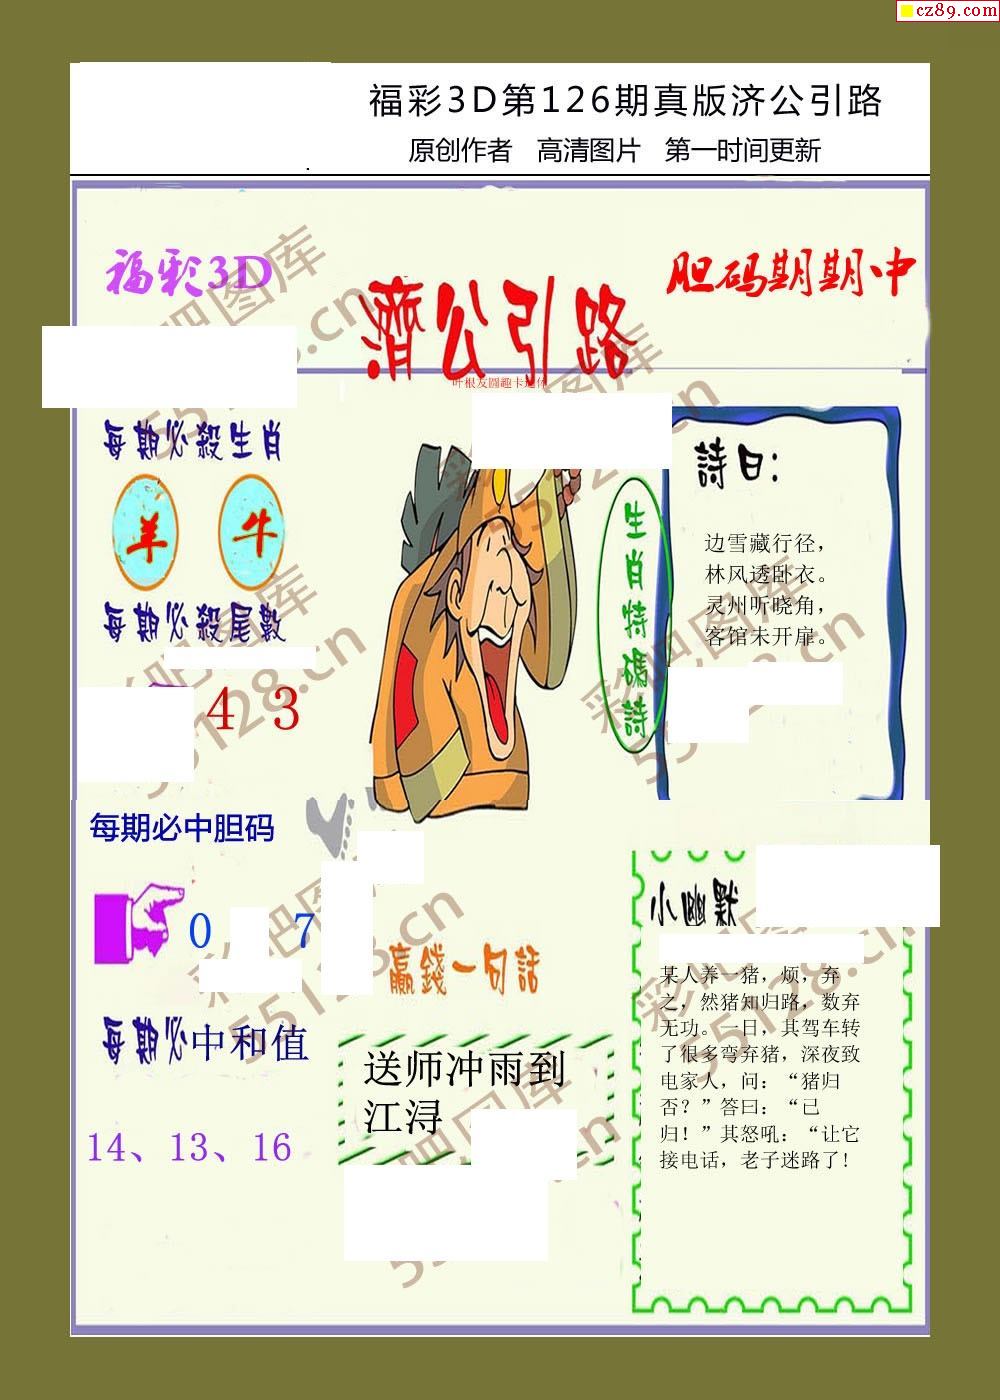 cz89.com
福彩3D第126期真版济公引路
原创作者 高清图片 第一时间更新
福彩3D
濟公引路
胆码期期中
叶根友圆趣卡通体
每期必殺生肖
羊 牛
每期必殺尾數
4 3
生肖特碼詩
詩曰：
边雪藏行径，
林风透卧衣。
灵州听晓角，
客馆未开扉。
每期必中胆码
0 7
每期必中和值
14、13、16
贏錢一句話
送师冲雨到
江浔
小幽默
某人养一猪，烦，弃
之，然猪知归路，数弃
无功。一日，其驾车转
了很多弯弃猪，深夜致
电家人，问：“猪归
否？”答曰：“已
归！”其怒吼：“让它
接电话，老子迷路了!
彩吧图库
55128.cn